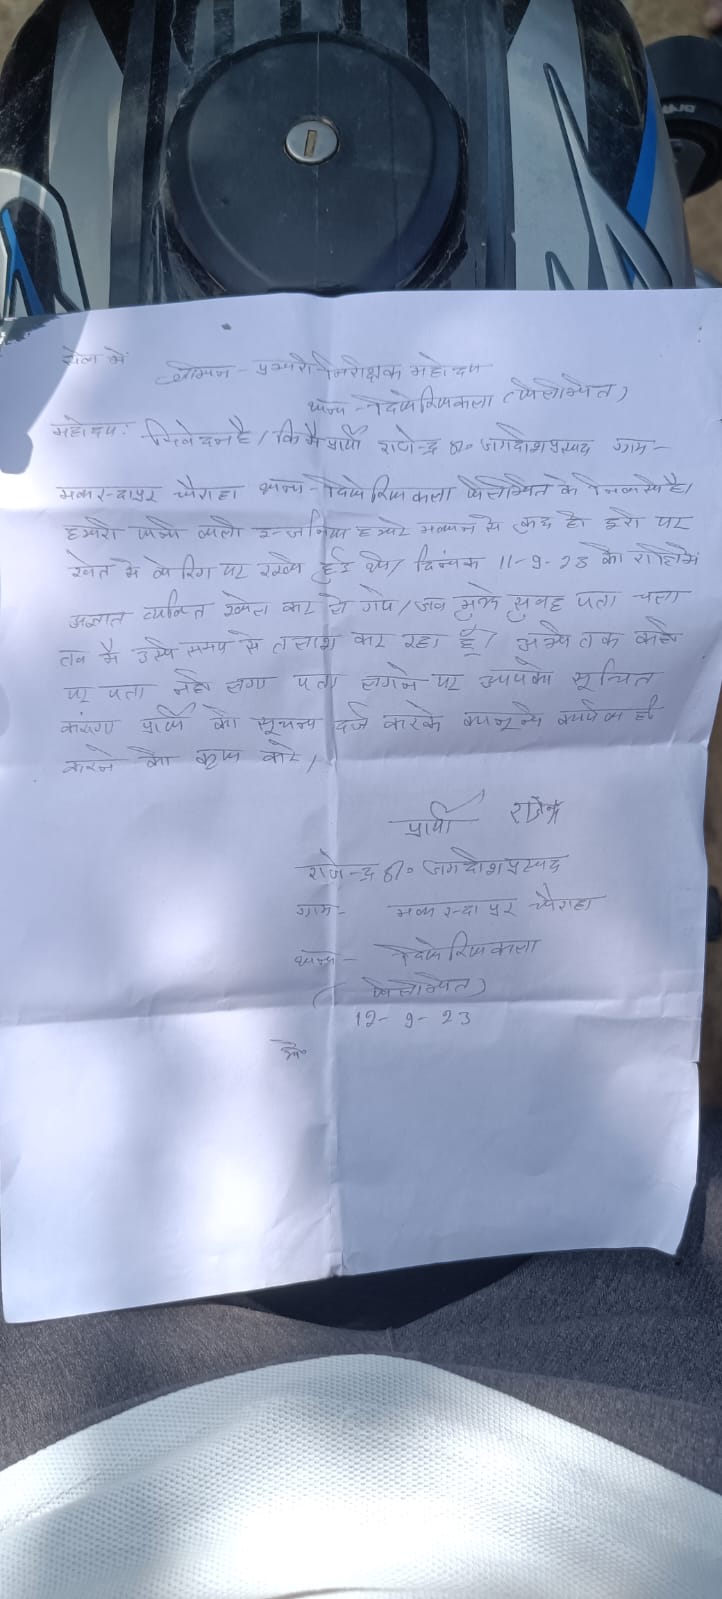 सेवा में
श्रीमान - प्रभारी निरीक्षक महोदय
थाना - दियोरियाकला (पीलीभीत)
महोदय: निवेदन है। कि मै प्रार्थी राजेन्द्र S/० जगदीश प्रसाद ग्राम -
मकरन्दापुर चौराहा थाना - दियोरियाकला पीलीभीत के निवासी है।
हमारी पानी वाली इन्जनिया हमारे मकान से कुछ ही दूरी पर
खेत मे बोरिंग पर रखी हुई थी। दिनांक 11-9-23 को रात्रि में
अज्ञात व्यक्ति चोरी कर ले गये। जब मुझे सुबह पता चला
तब मै उसी समय से तलाश कर रहा हूँ। अभी तक कही
पर पता नही लगा पता लगने पर आपको सूचित
करूंगा प्रार्थी की सूचना दर्ज करके कानूनी कार्यवाही
करने की कृपा करे।
प्रार्थी राजेन्द्र
राजेन्द्र S/० जगदीश प्रसाद
ग्राम - मकरन्दापुर चौराहा
थाना - दियोरियाकला
(पीलीभीत)
12-9-23